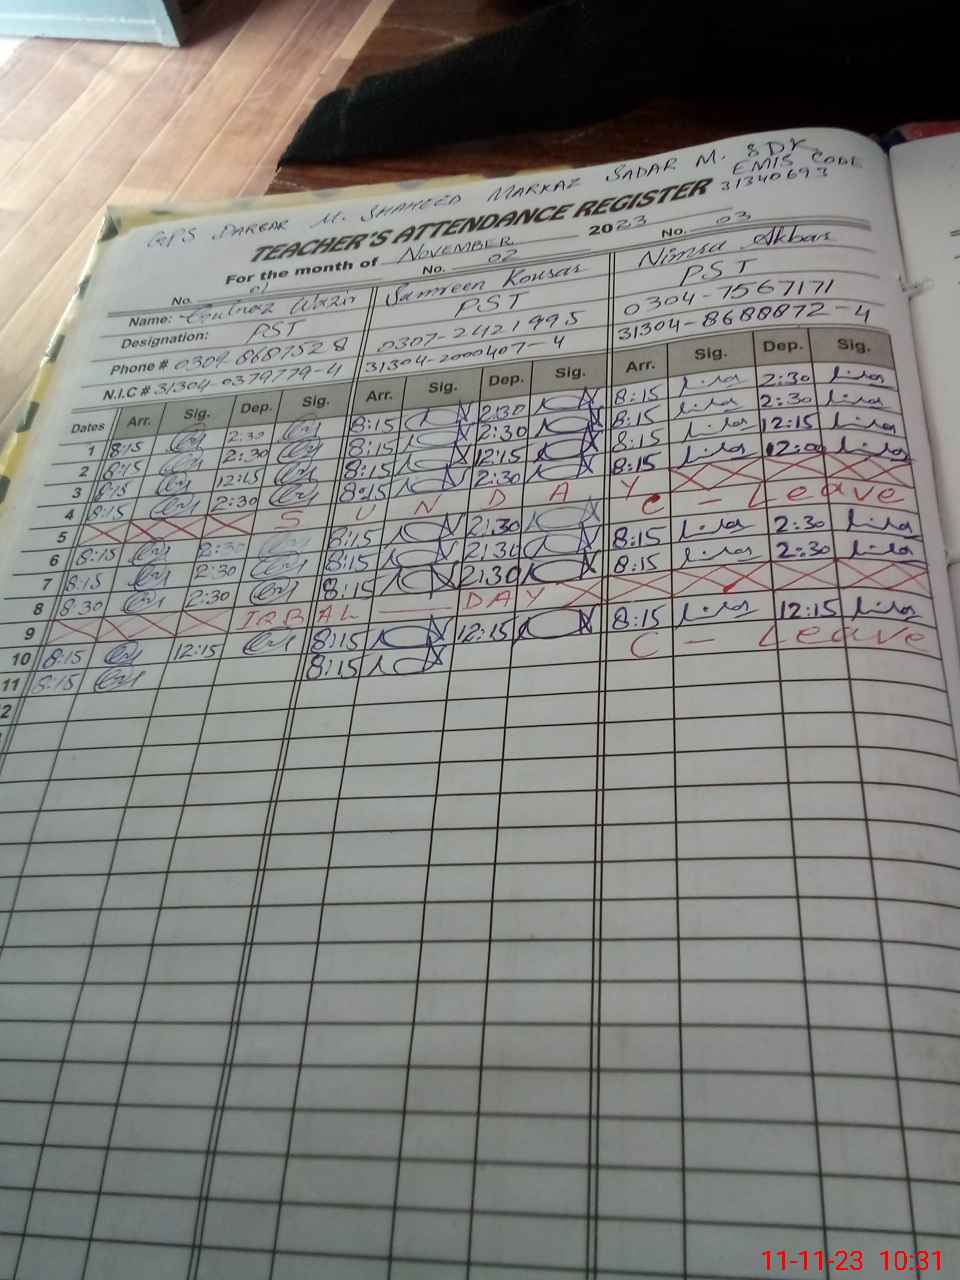 GPS DARBAR M. SHAHEED MARKAZ SADAR M. SDK
EMIS CODE
31340693
TEACHER'S ATTENDANCE REGISTER
For the month of NOVEMBER 2023
No. 01 No. 02 No. 03
Name: Gulnaz Wazir Samreen Kousar Nimra Akbar
Designation: PST PST PST
Phone # 0304-8687528 0307-2421995 0304-7567171
N.I.C # 31304-0379779-4 31304-2000407-4 31304-8688872-4
Dates Arr. Sig. Dep. Sig. Arr. Sig. Dep. Sig. Arr. Sig. Dep. Sig.
1 8:15 2:30 8:15 2:30 8:15 2:30
2 8:15 2:30 8:15 2:30 8:15 2:30
3 8:15 8:15 12:15 8:15 12:15
4 8:15 2:30 8:15 2:30 8:15 12:00
5 S U N D A Y
6 8:15 2:30 8:15 2:30 C - Leave
7 8:15 2:30 8:15 2:30 8:15 2:30
8 8:30 2:30 8:15 2:30 8:15 2:30
9 IQBAL — DAY
10 8:15 12:15 8:15 12:15 8:15 12:15
11 8:15 8:15 C - Leave
2
11-11-23 10:31